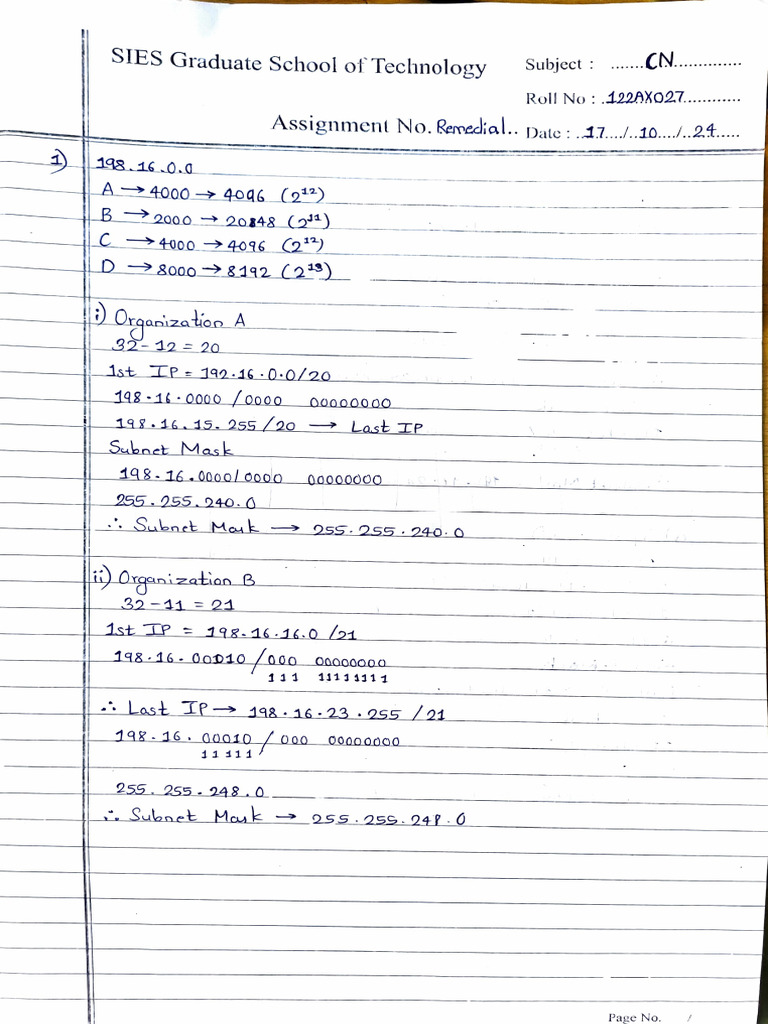 SIES Graduate School of Technology
Subject : .......CN..............
Roll No : .122AX027............
Assignment No. Remedial..
Date : ..17..../..10..../..24.....
1) 198.16.0.0
A → 4000 → 4096 (2¹²)
B → 2000 → 20848 (2¹¹)
C → 4000 → 4096 (2¹²)
D → 8000 → 8192 (2¹³)
i) Organization A
32-12 = 20
1st IP = 192.16.0.0/20
198.16.0000 / 0000 00000000
198.16.15.255 /20 → Last IP
Subnet Mask
198.16.0000/0000 00000000
255.255.240.0
∴ Subnet Mask → 255.255.240.0
ii) Organization B
32-11 = 21
1st IP = 198.16.16.0 /21
198.16.00010 / 000 00000000
111 11111111
∴ Last IP → 198.16.23.255 /21
198.16.00010 / 000 00000000
11111
255.255.248.0
∴ Subnet Mask → 255.255.248.0
Page No. /